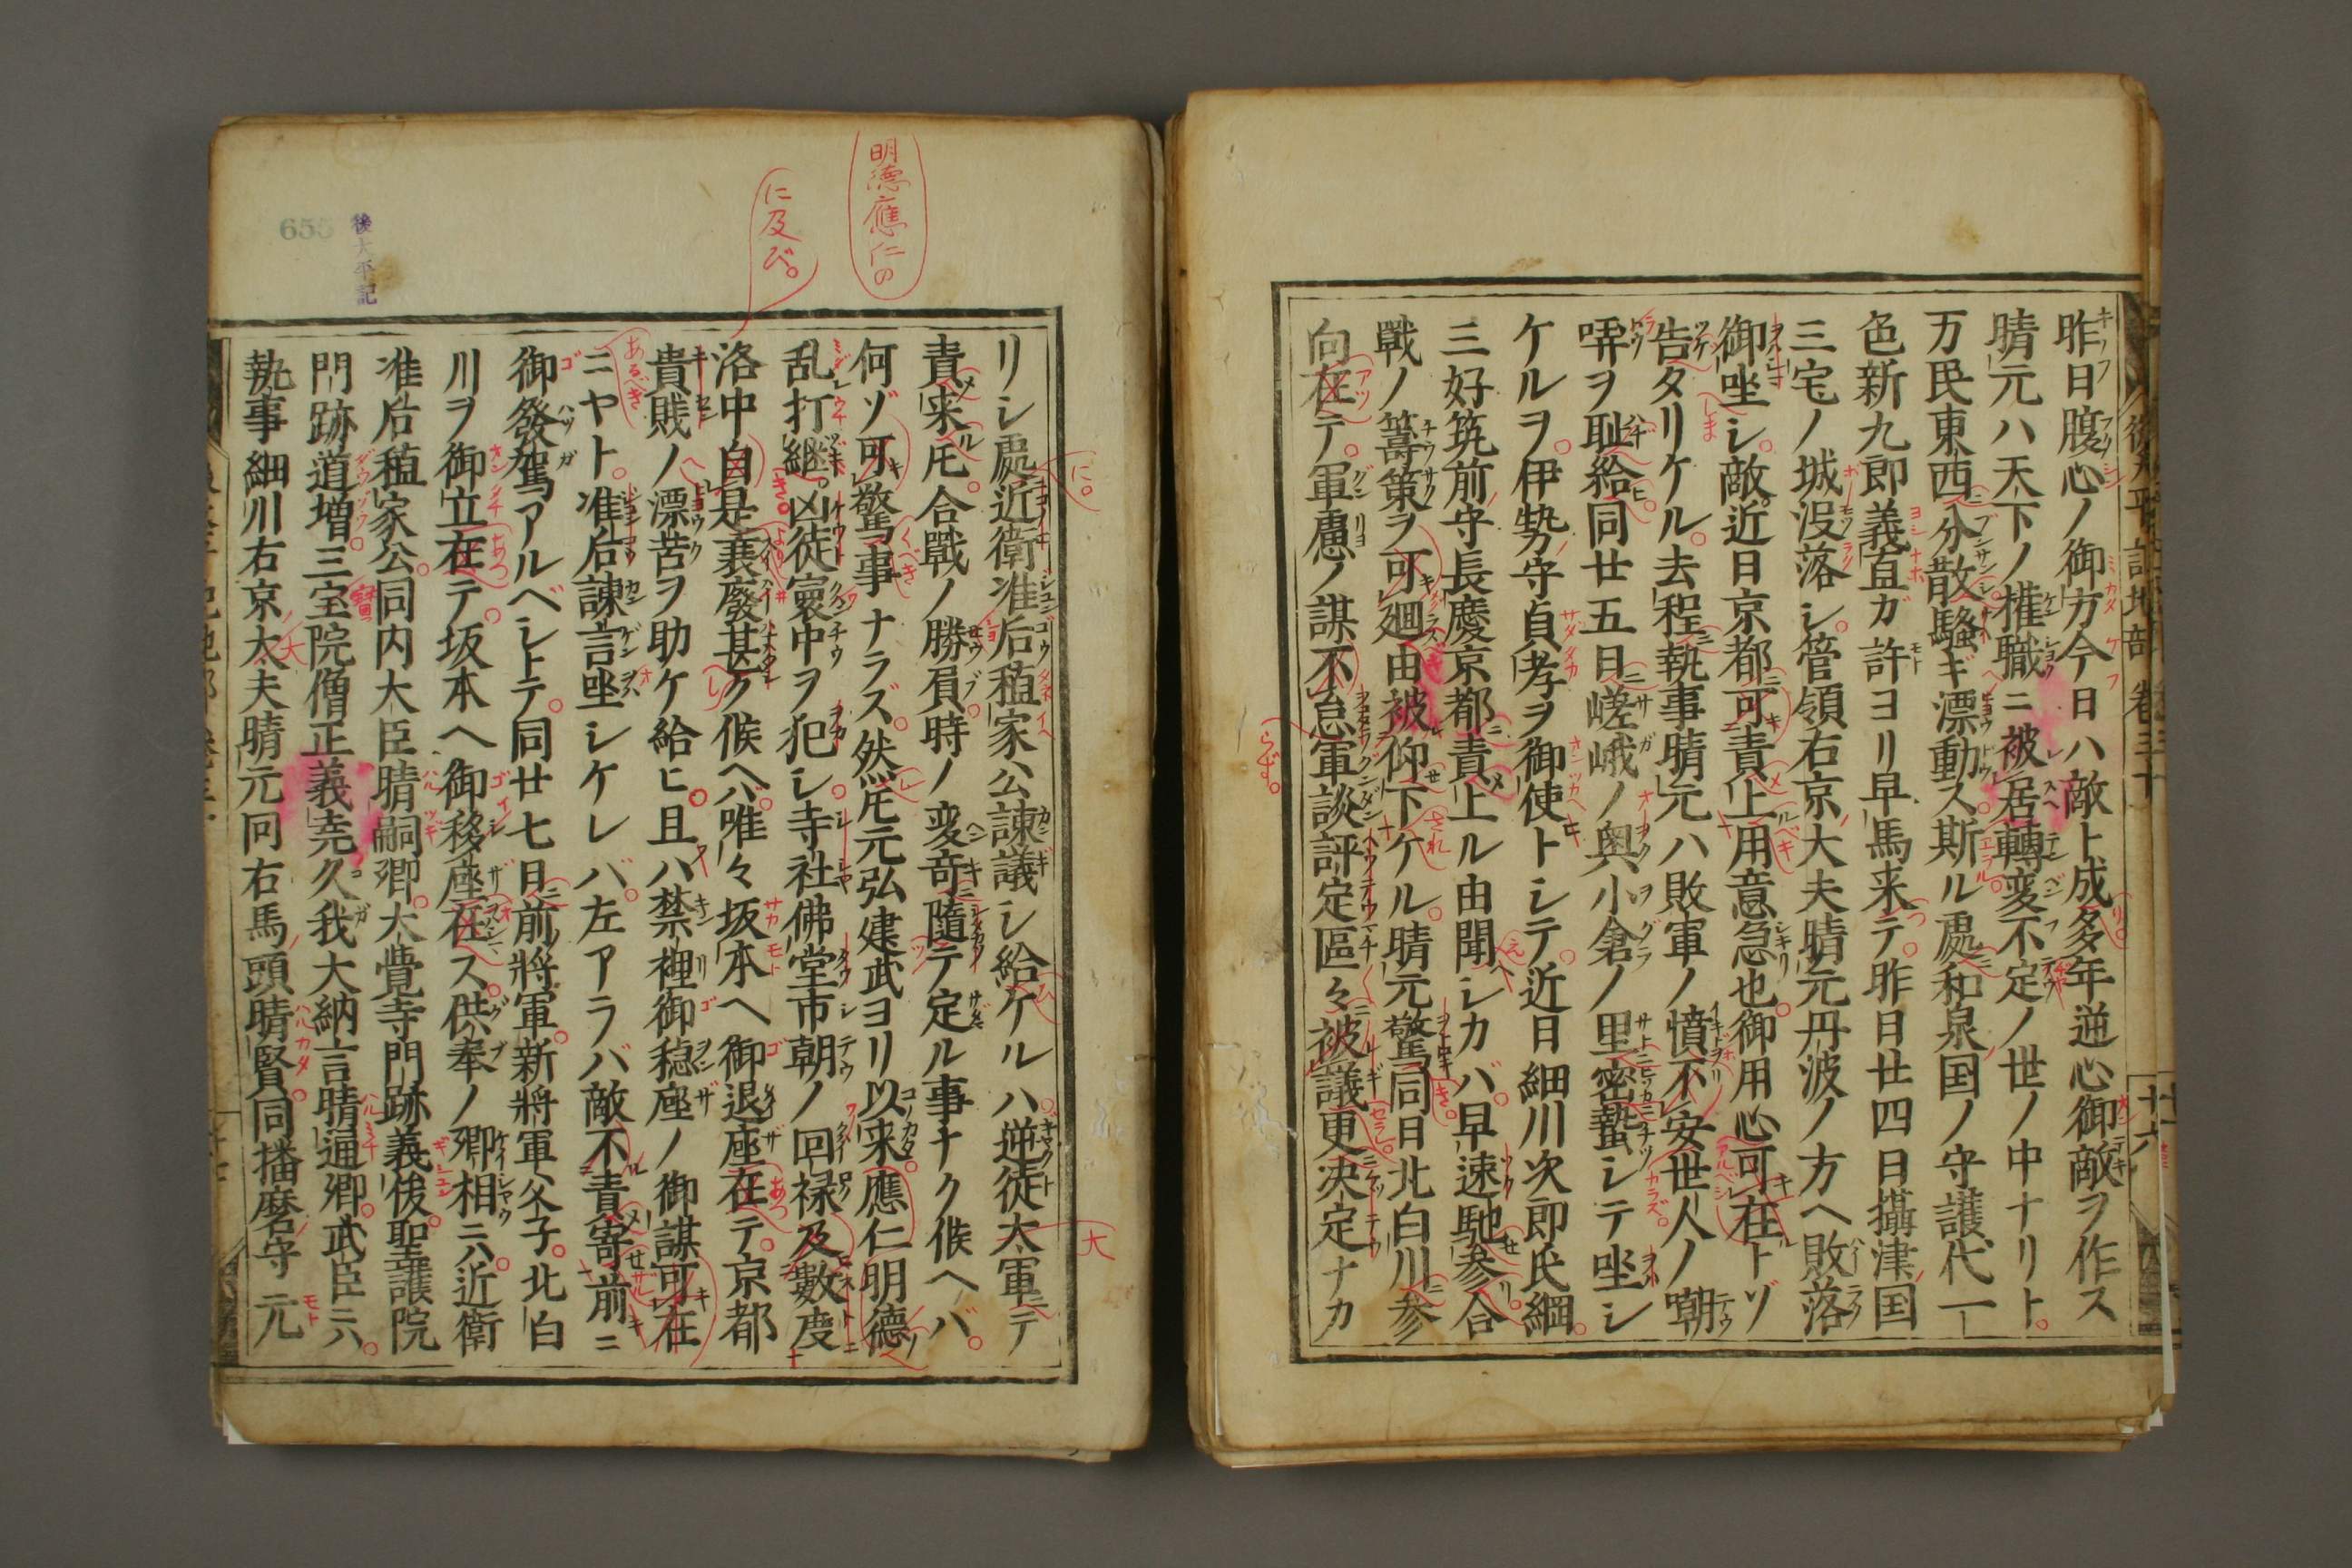 昨日腹心ノ御方今日ハ敵ト成多年逆心御敵ヲ作ス
晴元ハ天下ノ権職ニ被居轉変不定ノ世ノ中ナリト
万民東西分散騒ギ漂動ス斯ル處和泉国ノ守護代一
色新九郎義直ガ許ヨリ早馬来テ昨日廿四日攝津国
三宅ノ城没落シ管領右京大夫晴元丹波ノ方ヘ敗落
御坐シ敵近日京都可責上用意急也御用心可在トゾ
告タリケル去程執事晴元ハ敗軍ノ憤不安世人ノ嘲
哢ヲ恥給同廿五日嵯峨ノ奥小倉ノ里密蟄シテ坐シ
ケルヲ伊勢守貞孝ヲ御使トシテ近日細川次郎氏綱
三好筑前守長慶京都責上ル由聞シカバ早速馳参合
戰ノ籌策ヲ可廻由被仰下ケル晴元驚同日北白川参
向在テ軍慮ノ謀不怠軍談評定區々被議更决定ナカ
後太平記地部 巻三十
十六
リシ處近衛准后稙家公諌議シ給ケルハ逆徒大軍ニテ
責来ル圧合戰ノ勝負時ノ変竒隨テ定ル事ナク候ヘバ
何ゾ可驚事ナラズ然圧元弘建武ヨリ以来應仁明徳ノ
乱打継凶徒寰中ヲ犯シ寺社佛堂市朝ノ回禄及數度
洛中自是衰廢甚ク候ヘバ唯々坂本ヘ御退座在テ京都
貴賎ノ漂苦ヲ助ケ給ヒ且ハ禁裡御穏座ノ御謀可在
ニヤト准后諌言坐シケレバ左アラバ敵不責寄前ニ
御發駕アルベシトテ同廿七日前將軍新將軍父子北白
川ヲ御立在テ坂本ヘ御移座在ス供奉ノ卿相ニハ近衛
准后稙家公同内大臣晴嗣卿大覺寺門跡義俊聖護院
門跡道増三宝院僧正義堯久我大納言晴通卿武臣ニハ
執事細川右京大夫晴元同右馬頭晴賢同播磨守元
明徳應仁の
に及び。
後太平記
655